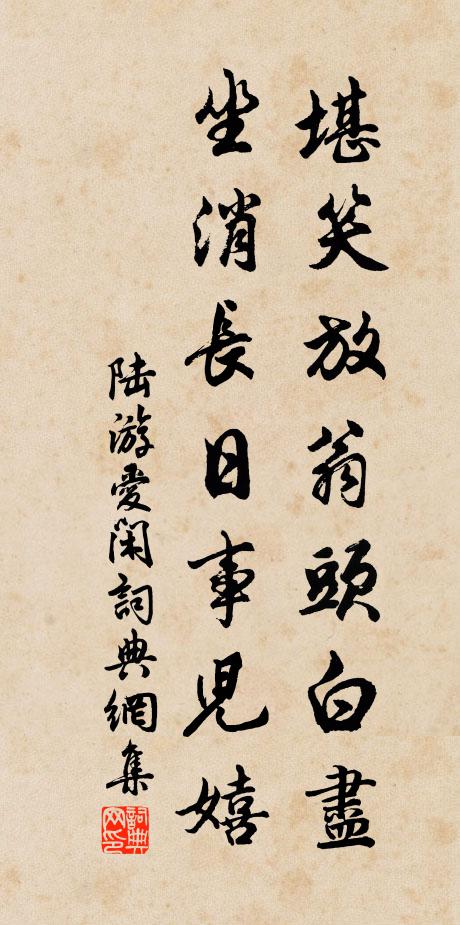 堪笑放翁頭白盡
坐消長日事兒嬉
陸游愛閑詞典網集
詞典網印